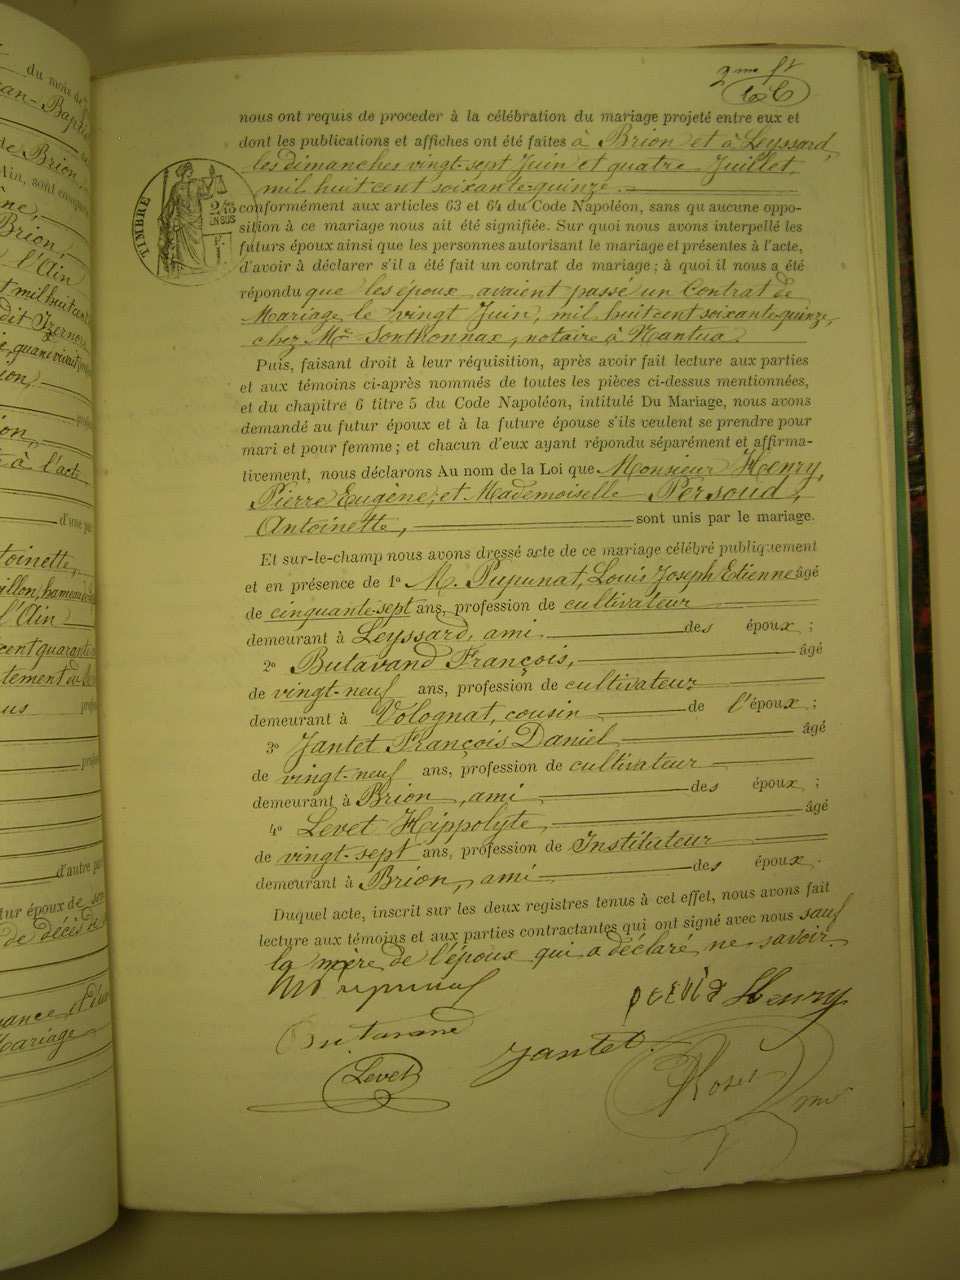 du mois de
an-Baptis
de Brion,
Ain,
Brion,
l'Ain
t mil huit cent
dit Izernore
ion,
on,
à l'act
d'une pa
toinette,
illon, hameau
l'Ain
cent quarante
tement de
us
d'autre pa
tur époux de
de décès de
Mariage
2me ft
nous ont requis de proceder à la célébration du mariage projeté entre eux et
dont les publications et affiches ont été faites à Brion et à Leyssard,
les dimanches vingt-sept Juin et quatre Juillet,
mil huit cent soixante-quinze.
TIMBRE
EN SUS
conformément aux articles 63 et 64 du Code Napoléon, sans qu aucune oppo-
sition à ce mariage nous ait été signifiée. Sur quoi nous avons interpellé les
futurs époux ainsi que les personnes autorisant le mariage et présentes à l'acte,
d'avoir à déclarer s'il a été fait un contrat de mariage ; à quoi il nous a été
répondu que les époux avaient passé un Contrat de
Mariage le vingt Juin, mil huit cent soixante-quinze,
chez Me Sonthonnax, notaire à Nantua
Puis, faisant droit à leur réquisition, après avoir fait lecture aux parties
et aux témoins ci-après nommés de toutes les pièces ci-dessus mentionnées,
et du chapitre 6 titre 5 du Code Napoléon, intitulé Du Mariage, nous avons
demandé au futur époux et à la future épouse s'ils veulent se prendre pour
mari et pour femme ; et chacun d'eux ayant répondu séparément et affirma-
tivement, nous déclarons Au nom de la Loi que Monsieur Henry,
Pierre Eugène, et Mademoiselle Persoud,
Antoinette, sont unis par le mariage.
Et sur-le-champ nous avons dressé acte de ce mariage célébré publiquement
et en présence de 1º M. Pupunat, Louis Joseph Etienne âgé
de cinquante-sept ans, profession de cultivateur
demeurant à Leyssard, ami des époux ;
2º Butavand François, âgé
de vingt-neuf ans, profession de cultivateur
demeurant à Volognat, cousin de l'époux ;
3º Jantet François Daniel âgé
de vingt-neuf ans, profession de cultivateur
demeurant à Brion, ami des époux ;
4º Levet Hippolyte, âgé
de vingt-sept ans, profession de Instituteur
demeurant à Brion, ami des époux.
Duquel acte, inscrit sur les deux registres tenus à cet effet, nous avons fait
lecture aux témoins et aux parties contractantes qui ont signé avec nous sauf
la mère de l'époux qui a déclaré ne savoir.
Henry
Butavand
Jantet
Levet